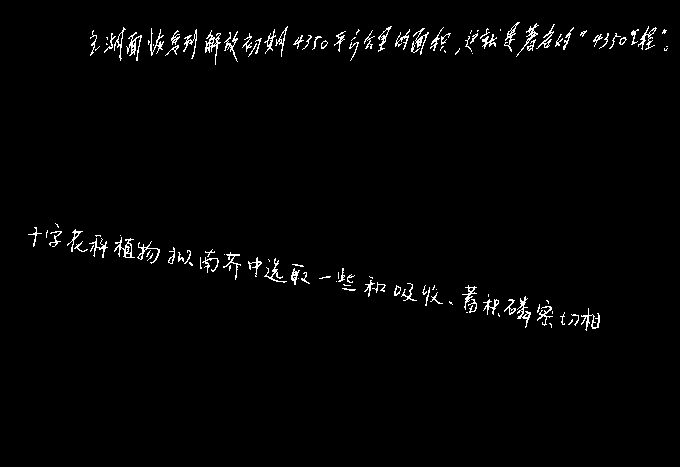 全湖面恢复到解放初期4350平方公里的面积，这就是著名的“4350工程”。
十字花科植物拟南芥中选取一些和吸收、蓄积磷密切相